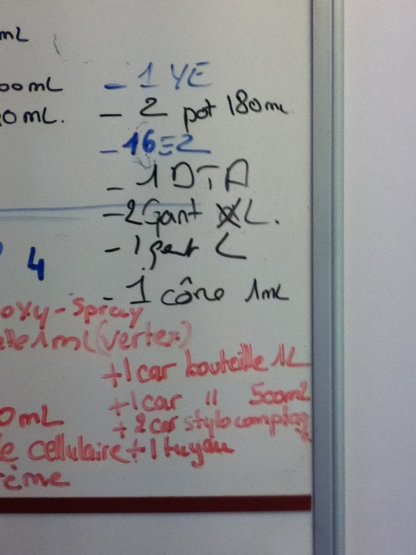 mL
00mL - 1 YE
0mL. - 2 pot 180mL
- 16=2
- 1 DTA
- 2 Gant XL.
4 - 1 gant L
- 1 cône 1mL
oxy-Spray
elle 1ml (vertex)
+ 1 car bouteille 1L
+ 1 car " 500mL
0mL + 2 car stylo comptag
e cellulaire + 1 tuyau
rème